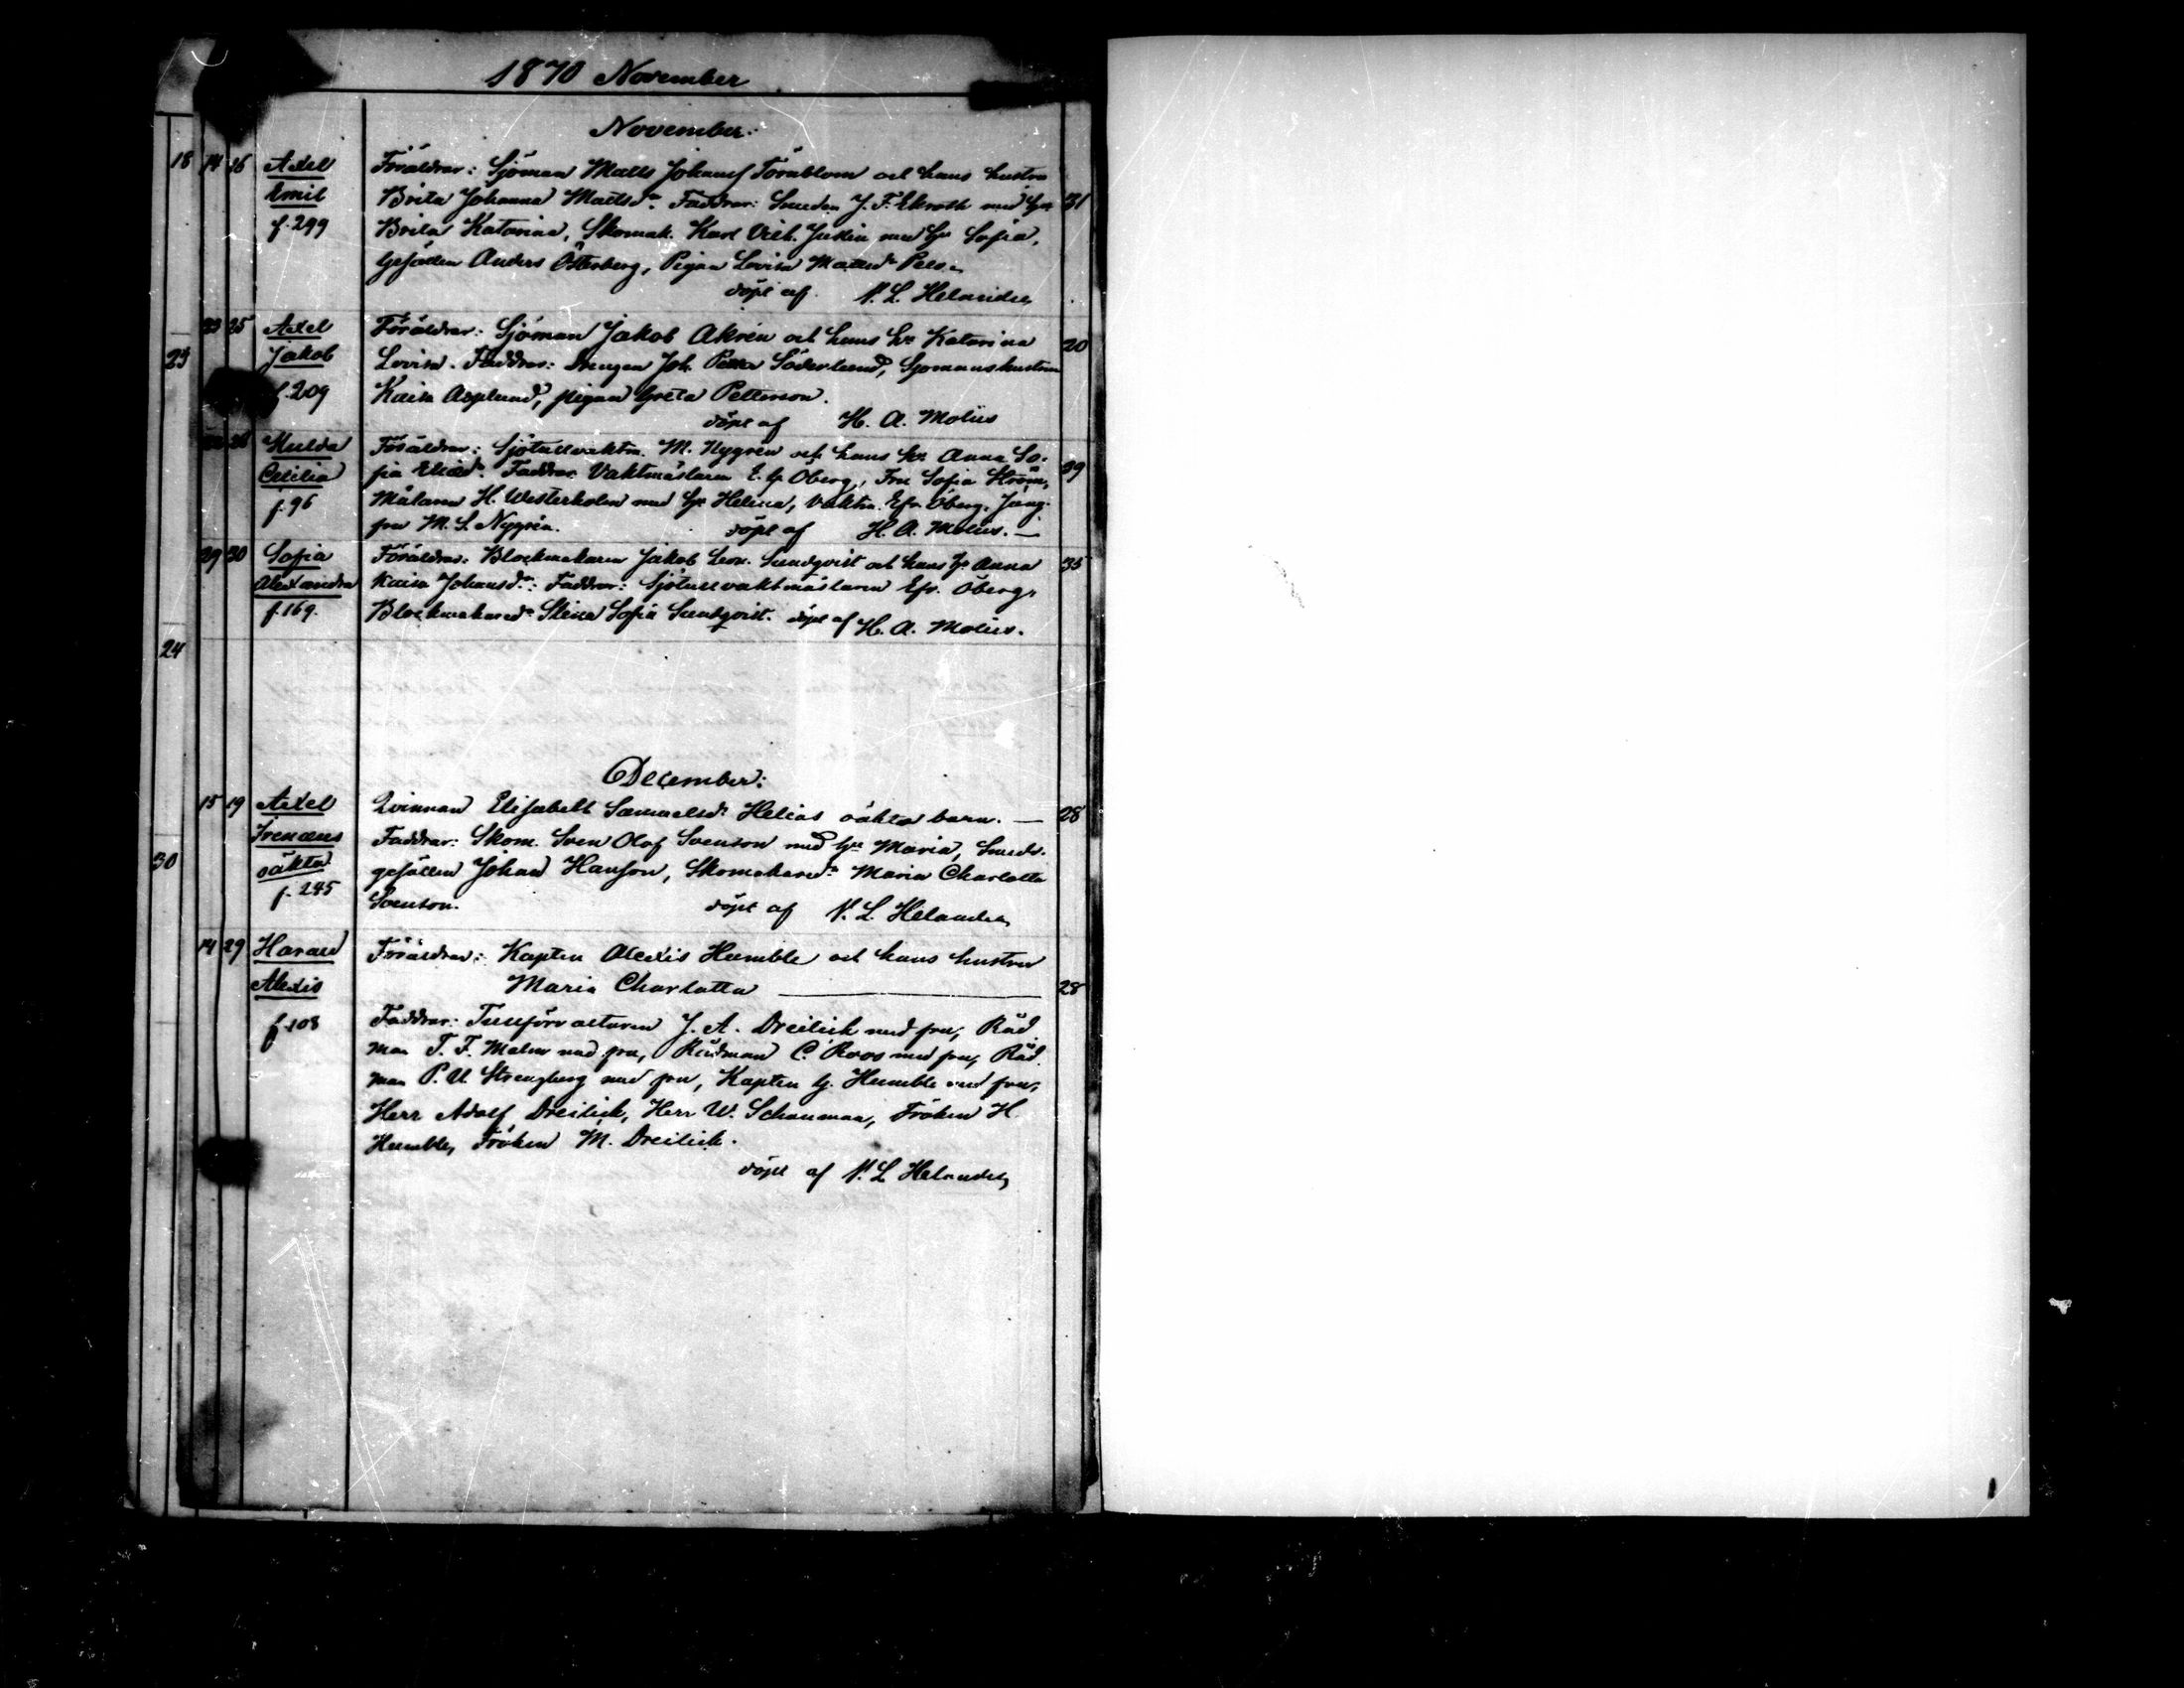 1870 November
November:
18 14 26 Axel Föräldrar: Sjöman Matts Johansf Törnblom och hans hustru
Emil Brita Johanna Mattsdr. Faddrar: Smeden J. F. Ekroth med hu 31
f. 299 Brita Katarina, Skomak. Karl Vilh. Juslin med hu Sofia,
Gesällen Anders Österberg, Pigan Lovisa Mattsdr
döpt af N. L. Helander
23 25 Axel Föräldrar: Sjöman Jakob Åkrén och hans hu Katarina 20
23 Jakob Lovisa. Faddrar: Drengen Joh. Söderlund, Sjömanshustrun
f. 209 Kaisa Asplund, pigan Greta Petterson.
döpt af H. A. Moliis
26 Hulda Föräldrar: Sjötullvaktm. M. Nygrén och hans hu Anna So-
Cecilia fia Eliædr. Faddrar Vaktmästaren E. G. Öberg, Fru Sofia Ström, 39
f. 96 Målaren H. Westerholm med hu Helena, Vaktm. Efr. Öberg, Jung-
fru M. S. Nygrén. döpt af H. A. Molius.
29 30 Sofia Föräldrar: Blockmakaren Jakob Leon. Sundqvist och hans hu Anna 35
Alexandra Kaisa Johansdr: Faddrar: Sjötullvaktmästaren Efr. Öberg,
f. 169. Blockmakaredr Stina Sofia Sundqvist. döpt af H. A. Molius.
24
December:
15 19 Axel Qvinnan Elisabeth Samuelsdr Helias oäkta barn. — 28
Irenæus Faddrar: Skom. Sven Olof Svenson med hu Maria, Smeds-
30 oäkta gesällen Johan Hanson, Skomakaredr Maria Charlotta
f. 245 Svenson. döpt af N. L. Helander
14 29 Harald Föräldrar: Kapten Alexis Humble och hans hustru
Alexis Maria Charlotta — 28
f. 108 Faddrar: Tullförvaltaren J. A. Dreilick med fru, Råd-
man T. F. Malm med fru, Rådman C. Roos med fru, Råd-
man P. U. Strengberg med fru, Kapten G. Humble med fru,
Herr Adolf Dreilick, Herr W. Schauman, Fröken H.
Humble, Fröken M. Dreilick.
döpt af N. L. Helander